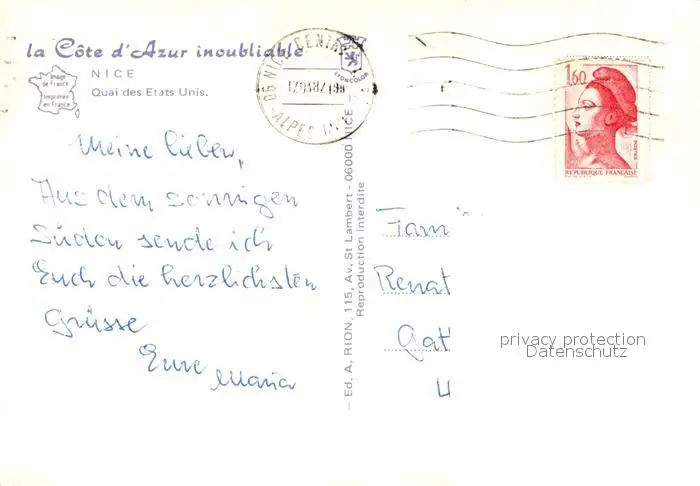 la Côte d'Azur inoubliable
Image de France
Imprimée en France
NICE
Quai des Etats Unis.
LYONCOLOR
06 NICE CENTRE
ALPES
1,60
POSTES
REPUBLIQUE FRANÇAISE
Meine lieben,
Aus dem sonnigen
Süden sende ich
Euch die herzlichsten
Grüsse
Eure Maria
— Ed. A, RION, 115, Av. St Lambert - 06000 NICE —
Reproduction interdite
Fam
Renat
Gat
privacy protection
Datenschutz